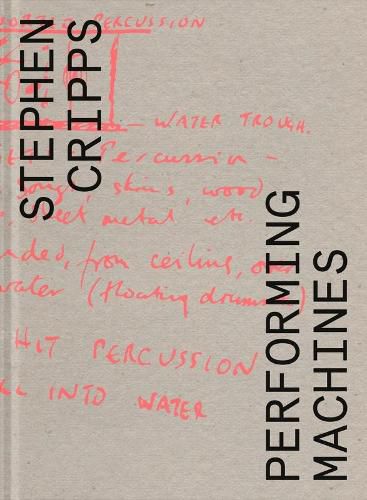 STEPHEN
CRIPPS
PERFORMING
MACHINES
PERCUSSION
— WATER TROUGH.
Percussion —
gongs, skins, wood
sheet metal etc.
nded, from ceiling, over
water (floating drums)
HIT PERCUSSION
LL INTO WATER